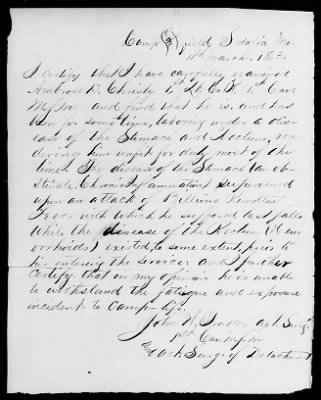 Camp field Sedalia Mo.
18th March. 1863.
I certify that I have carefully examined
Ambrose D. Christy 1st Lt. Co. K. 1st Cav.
M.S.M. and find that he is, and has
been for some time, laboring under a dis-
ease of the Stomach and Rectum, ren-
dering him unfit for duty most of the
time. The disease of the Stomach (an ob-
stinate Chronic Inflammation) supervened
upon an attack of Billious Remittent
Fever with which he suffered last fall.
While the disease of the Rectum (Haem
orrhoids) existed, to some extent, prior to
his entering the Service: and I further
certify, that in my opinion he is unable
to withstand the fatigue and exposure
incident to Camp-life.
John act. Surg.
1st Cav. M.S.M.
and act. Surg. of Detachment